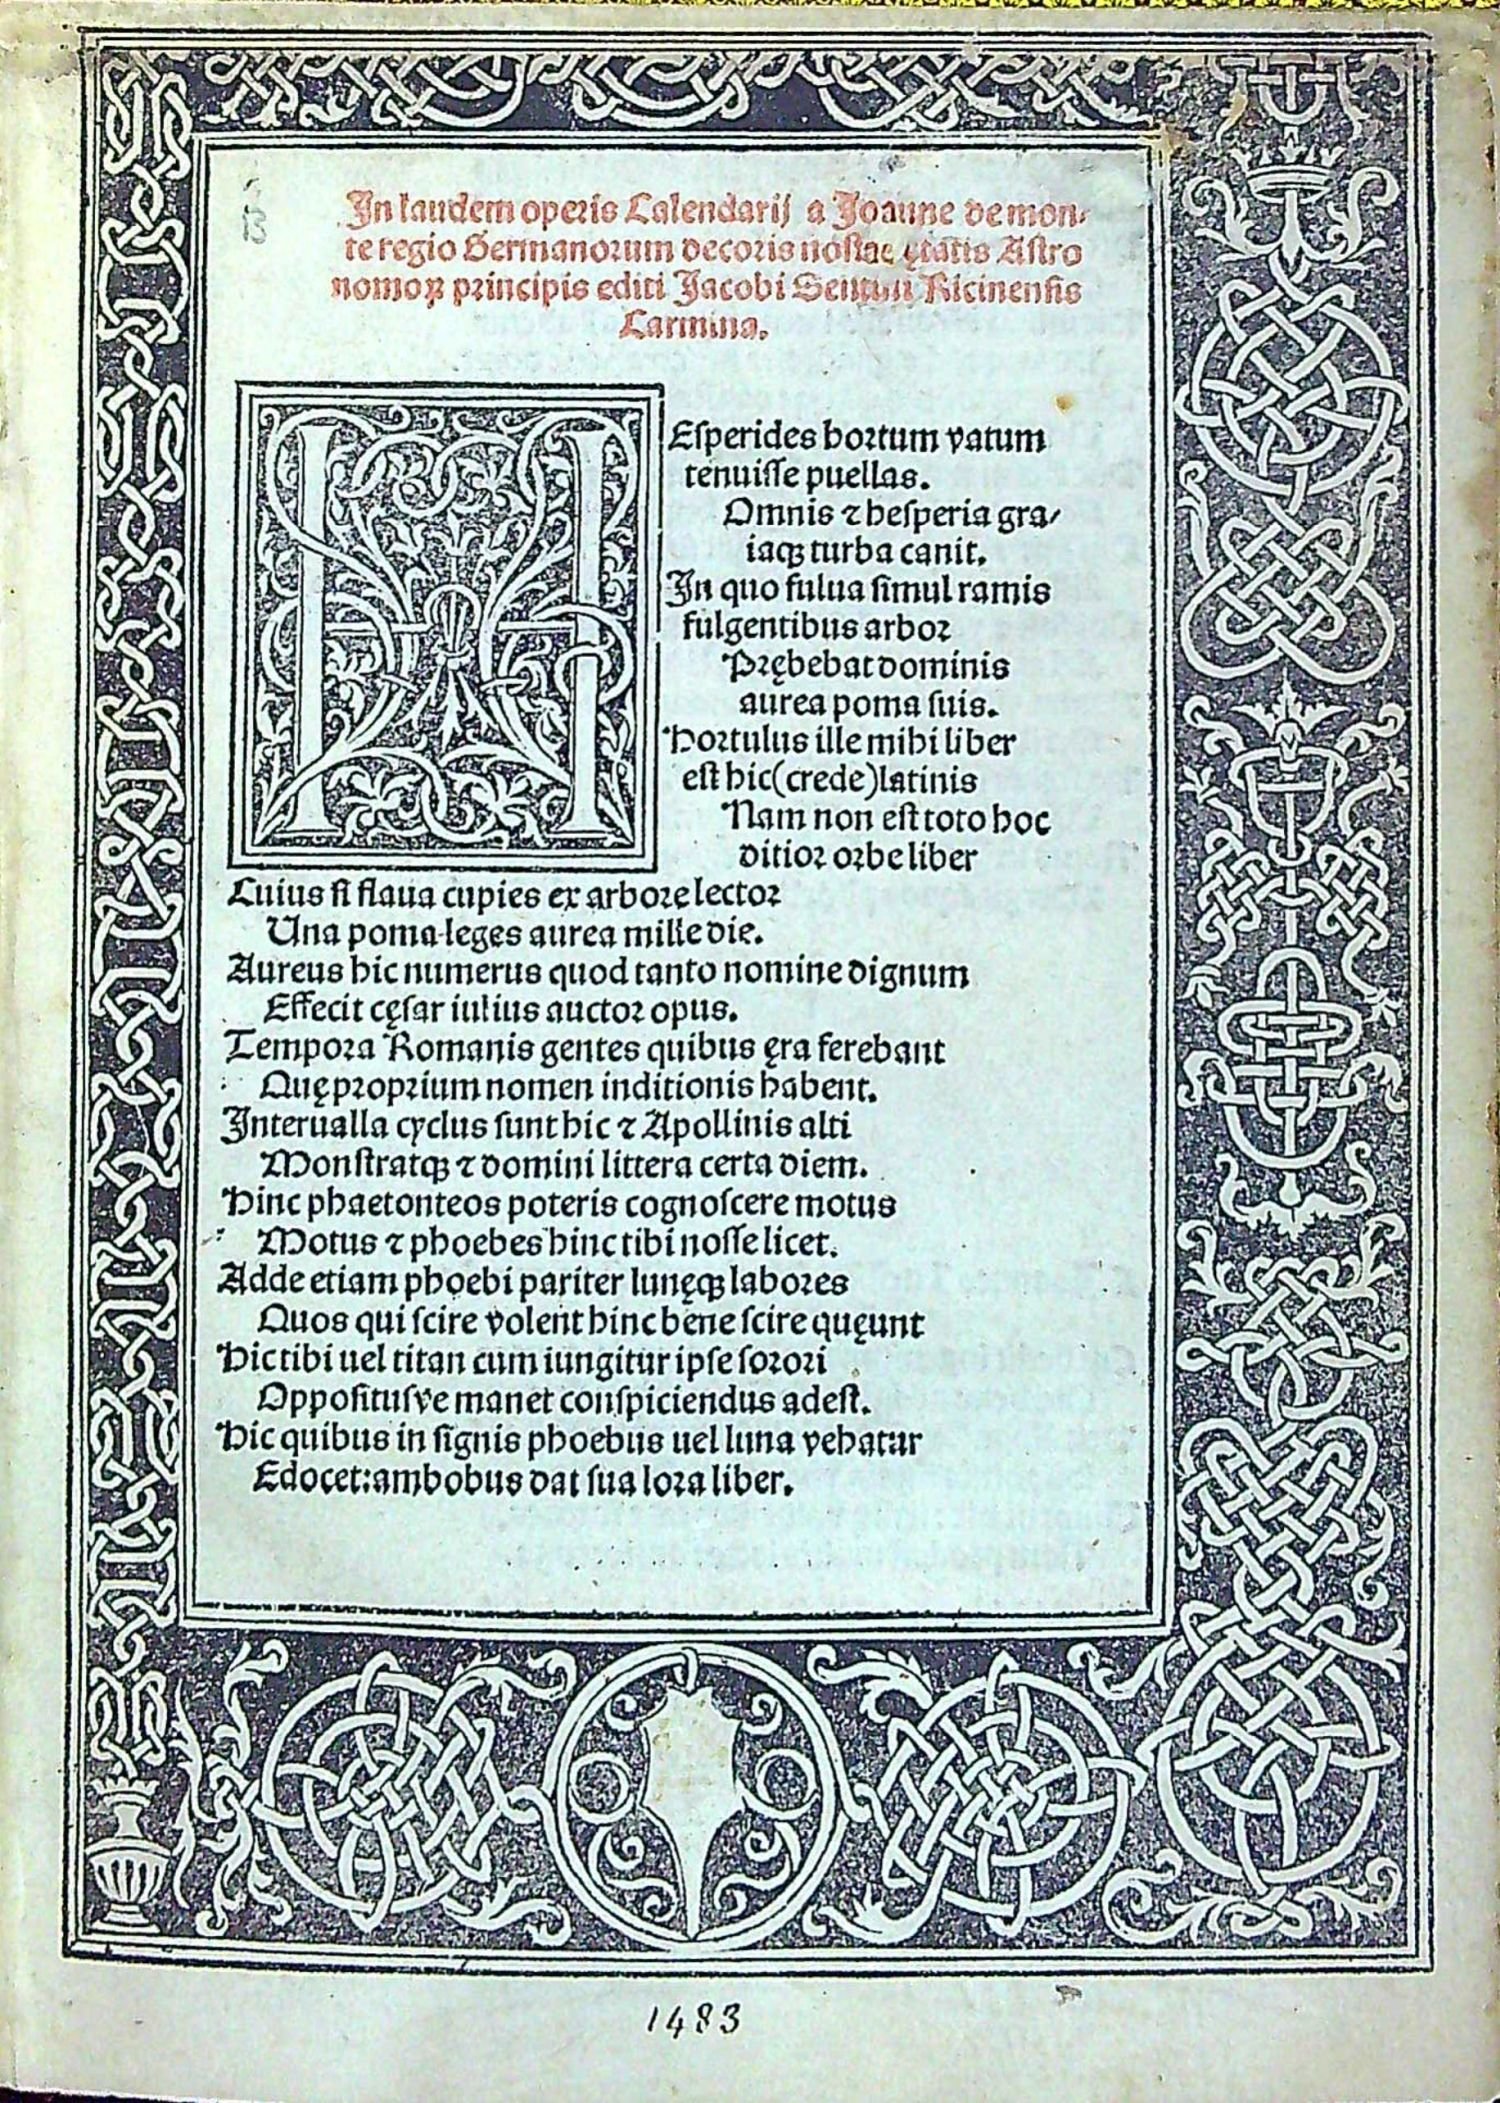 In laudem operis Calendarij a Joanne de mon-
te regio Germanorum decoris nostrae ętatis Astro
nomoꝝ principis editi Jacobi Sentini Ricinensis
Carmina.
HEsperides hortum vatum
tenuisse puellas.
Omnis ⁊ hesperia gra-
iaqꝫ turba canit.
In quo fulua simul ramis
fulgentibus arbor
Prębebat dominis
aurea poma suis.
Hortulus ille mihi liber
est hic (crede) latinis
Nam non est toto hoc
ditior orbe liber
Cuius si flaua cupies ex arbore lector
Una poma leges aurea mille die.
Aureus hic numerus quod tanto nomine dignum
Effecit cęsar iulius auctor opus.
Tempora Romanis gentes quibus ęra ferebant
Quę proprium nomen inditionis habent.
Interualla cyclus sunt hic ⁊ Apollinis alti
Monstratqꝫ ⁊ domini littera certa diem.
Hinc phaetonteos poteris cognoscere motus
Motus ⁊ phoebes hinc tibi nosse licet.
Adde etiam phoebi pariter lunęqꝫ labores
Quos qui scire volent hinc bene scire quęunt
Hic tibi uel titan cum iungitur ipse sorori
Oppositusve manet conspiciendus adest.
Hic quibus in signis phoebus uel luna vehatur
Edocet: ambobus dat sua lora liber.
1483